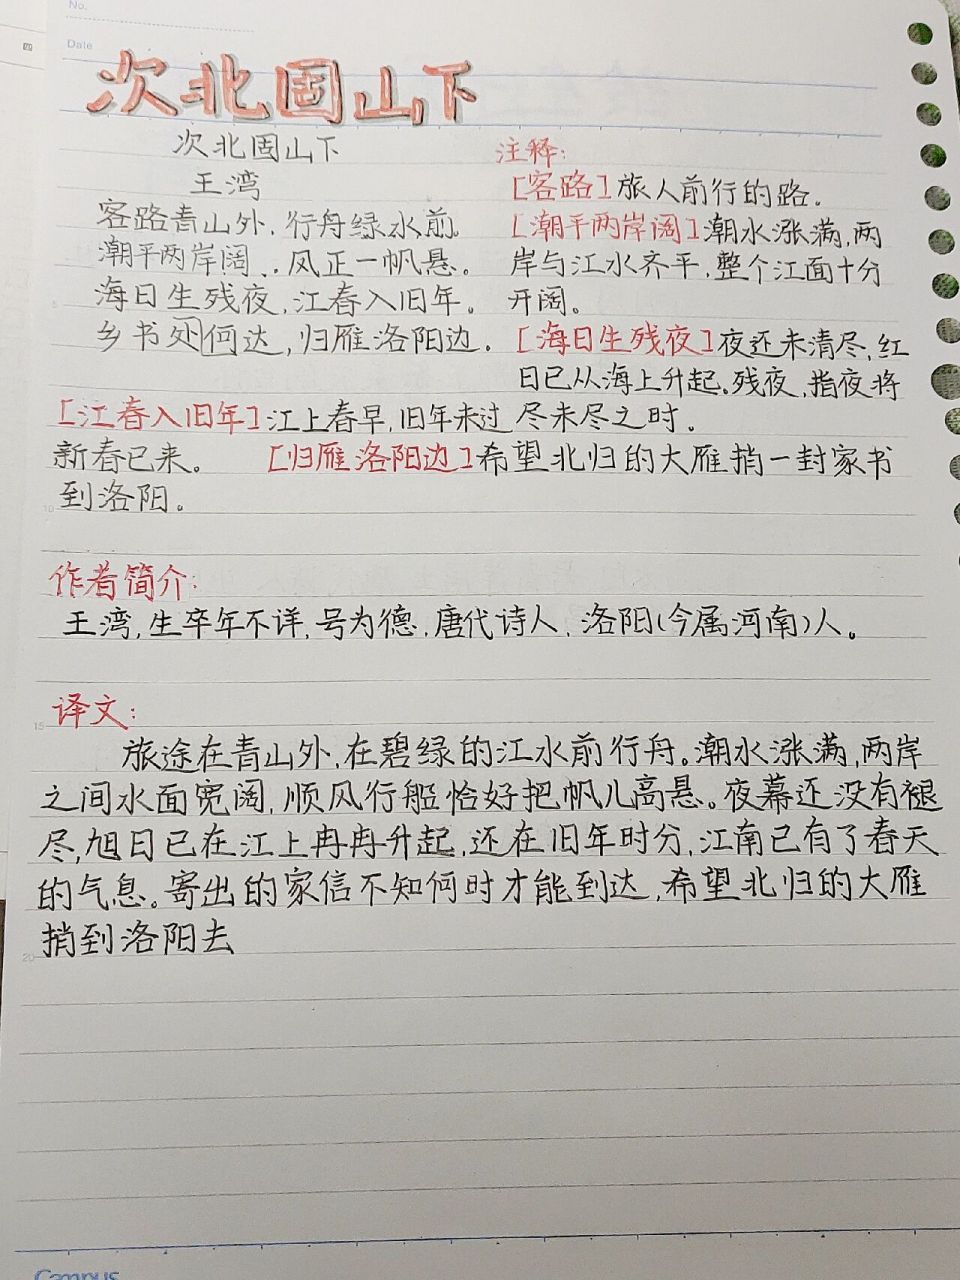 No.
Date
次北固山下
次北固山下
王湾
客路青山外,行舟绿水前。
潮平两岸阔,风正一帆悬。
海日生残夜,江春入旧年。
乡书处何达,归雁洛阳边.
注释:
[客路]旅人前行的路.
[潮平两岸阔]潮水涨满,两
岸与江水齐平,整个江面十分
开阔。
[海日生残夜]夜还未清尽,红
日已从海上升起。残夜,指夜将
尽未尽之时.
[江春入旧年]江上春早,旧年未过
新春已来。 [归雁洛阳边]希望北归的大雁捎一封家书
到洛阳。
作者简介:
王湾,生卒年不详,号为德,唐代诗人,洛阳(今属河南)人。
译文:
旅途在青山外,在碧绿的江水前行舟。潮水涨满,两岸
之间水面宽阔,顺风行船恰好把帆儿高悬。夜幕还没有褪
尽,旭日已在江上冉冉升起,还在旧年时分,江南已有了春天
的气息。寄出的家信不知何时才能到达,希望北归的大雁
捎到洛阳去
Campus